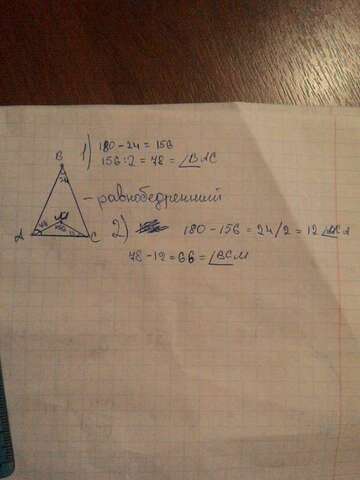 1) 180-24=156
156:2=78=∠BAC
B
24
- равнобедренний
A
C
M
2) 180-156=24/2=12
78-12=66=∠BCM